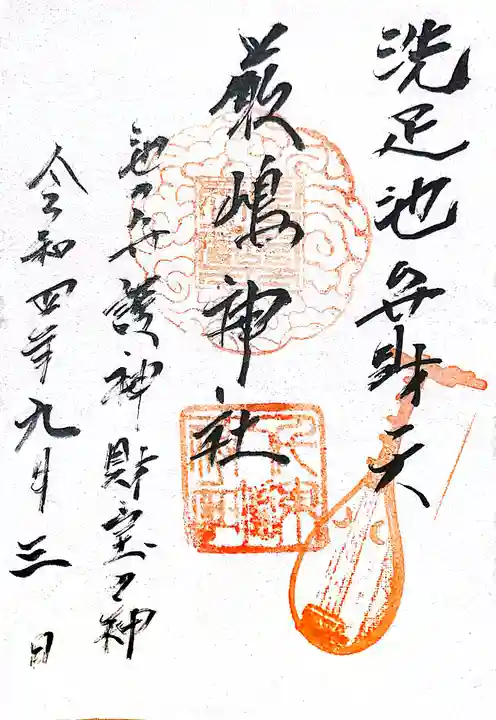 洗足池弁財天
厳嶋神社
池の弁護神財宝の神
令和四年九月三日